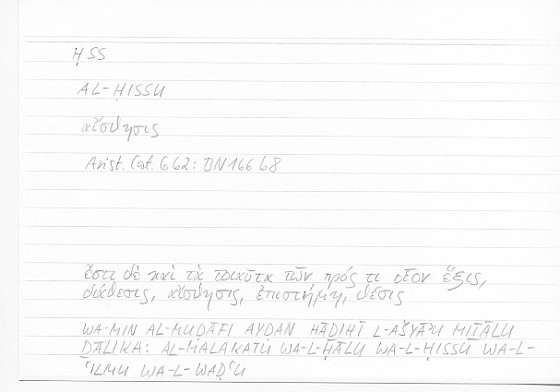 ḤSS
AL-ḤISSU
αἴσθησις
Arist. Cat. 6b2: BN166b8
ἔστι δὲ καὶ τὰ τοιαῦτα τῶν πρός τι οἷον ἕξις,
διάθεσις, αἴσθησις, ἐπιστήμη, θέσις
WA-MIN AL-MUḌĀFI AYḌAN HĀḎIHĪ L-AŠYĀʾU MIṮĀLU
ḎĀLIKA: AL-MALAKATU WA-L-ḤĀLU WA-L-ḤISSU WA-L-
ʿILMU WA-L-WAḌʿU